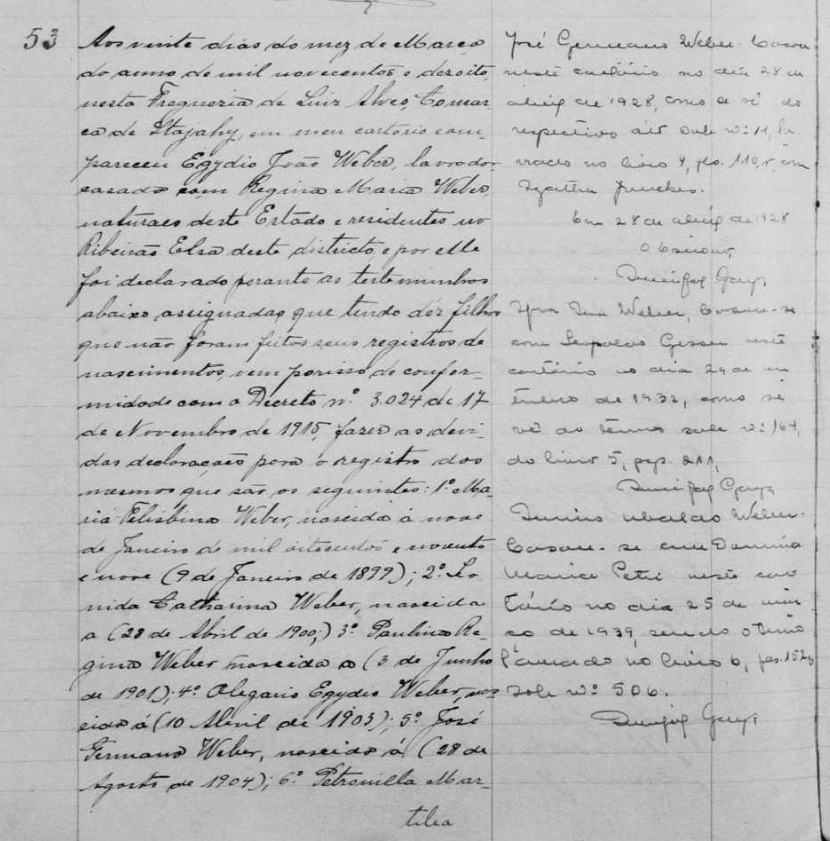 53
Aos vinte dias do mez de Março
do anno de mil novecentos e dezoito,
nesta Freguezia de Luiz Alves, Comar-
ca de Itajahy, em meu cartorio com-
pareceu Egydio João Weber, lavrador
casado com Regina Maria Weber,
naturaes deste Estado e residentes no
Ribeirão Elsa deste districto, e por elle
foi declarado perante as testemunhas
abaixo assignadas que tendo dez filhos
que não foram feitos seus registros de
nascimentos, vem por isso de confor-
midade com o Decreto nº 3.024 de 17
de Novembro de 1915, fazer as devi-
das declarações para o registro dos
mesmos que são os seguintes: 1º Ma-
ria Felisbina Weber, nascida á nove
de Janeiro de mil oitocentos e noventa
e nove (9 de Janeiro de 1899); 2º Leo-
nida Catharina Weber, nascida
a (28 de Abril de 1900;) 3º Paulina Re-
gina Weber nascida a (3 de Junho
de 1901); 4º Olegario Egydio Weber, nas-
cido á (10 Abril de 1903); 5º José
Germano Weber, nascido á (28 de
Agosto de 1904); 6º Petronilla Mar-
tilia
José Germano Weber Casou-
neste cartório no dia 28 de
abril de 1928, como se vê do
respectivo áto sob nº 11, la
vrado no livro 4, fls. 110,v, com
Agatha
Em 28 de abril de 1928
O Escrivão,
Weber, Casou-se
com Leopoldo Gesser neste
cartório no dia 29 de
de 1932, como se
vê do termo sob nº 164,
do livro 5, pags. 211,
Weber-
Casou-se com
Maria Petri neste car
tório no dia 25 de mar
ço de 1939, sendo o termo
lavrado no livro 6, fls. 152v
sob nº 506.